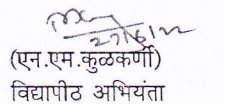 27/6/22
(एन.एम.कुळकर्णी)
विद्यापीठ अभियंता